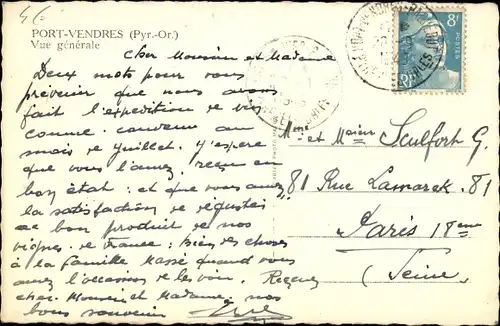 PORT-VENDRES (Pyr.-Or.)
Vue générale
Cher Monsieur et Madame
Deux mots pour vous
prévenir que nous avons
fait l'expedition de vin
comme convenu au
mois de juillet. J'espere
que vous l'avez reçu en
bon état: et que vous avez
la satisfaction de deguster
ce bon produit de nos
vignes de France: Bien des choses
à la famille Massé quand vous
aurez l'occasion de les voir. Recevez
cher Monsieur et Madame nos
bons souvenirs
Mme et Mr Sculfort G.
81 Rue Lamarck. 81
Paris 18eme
(Seine)
8F
POSTES